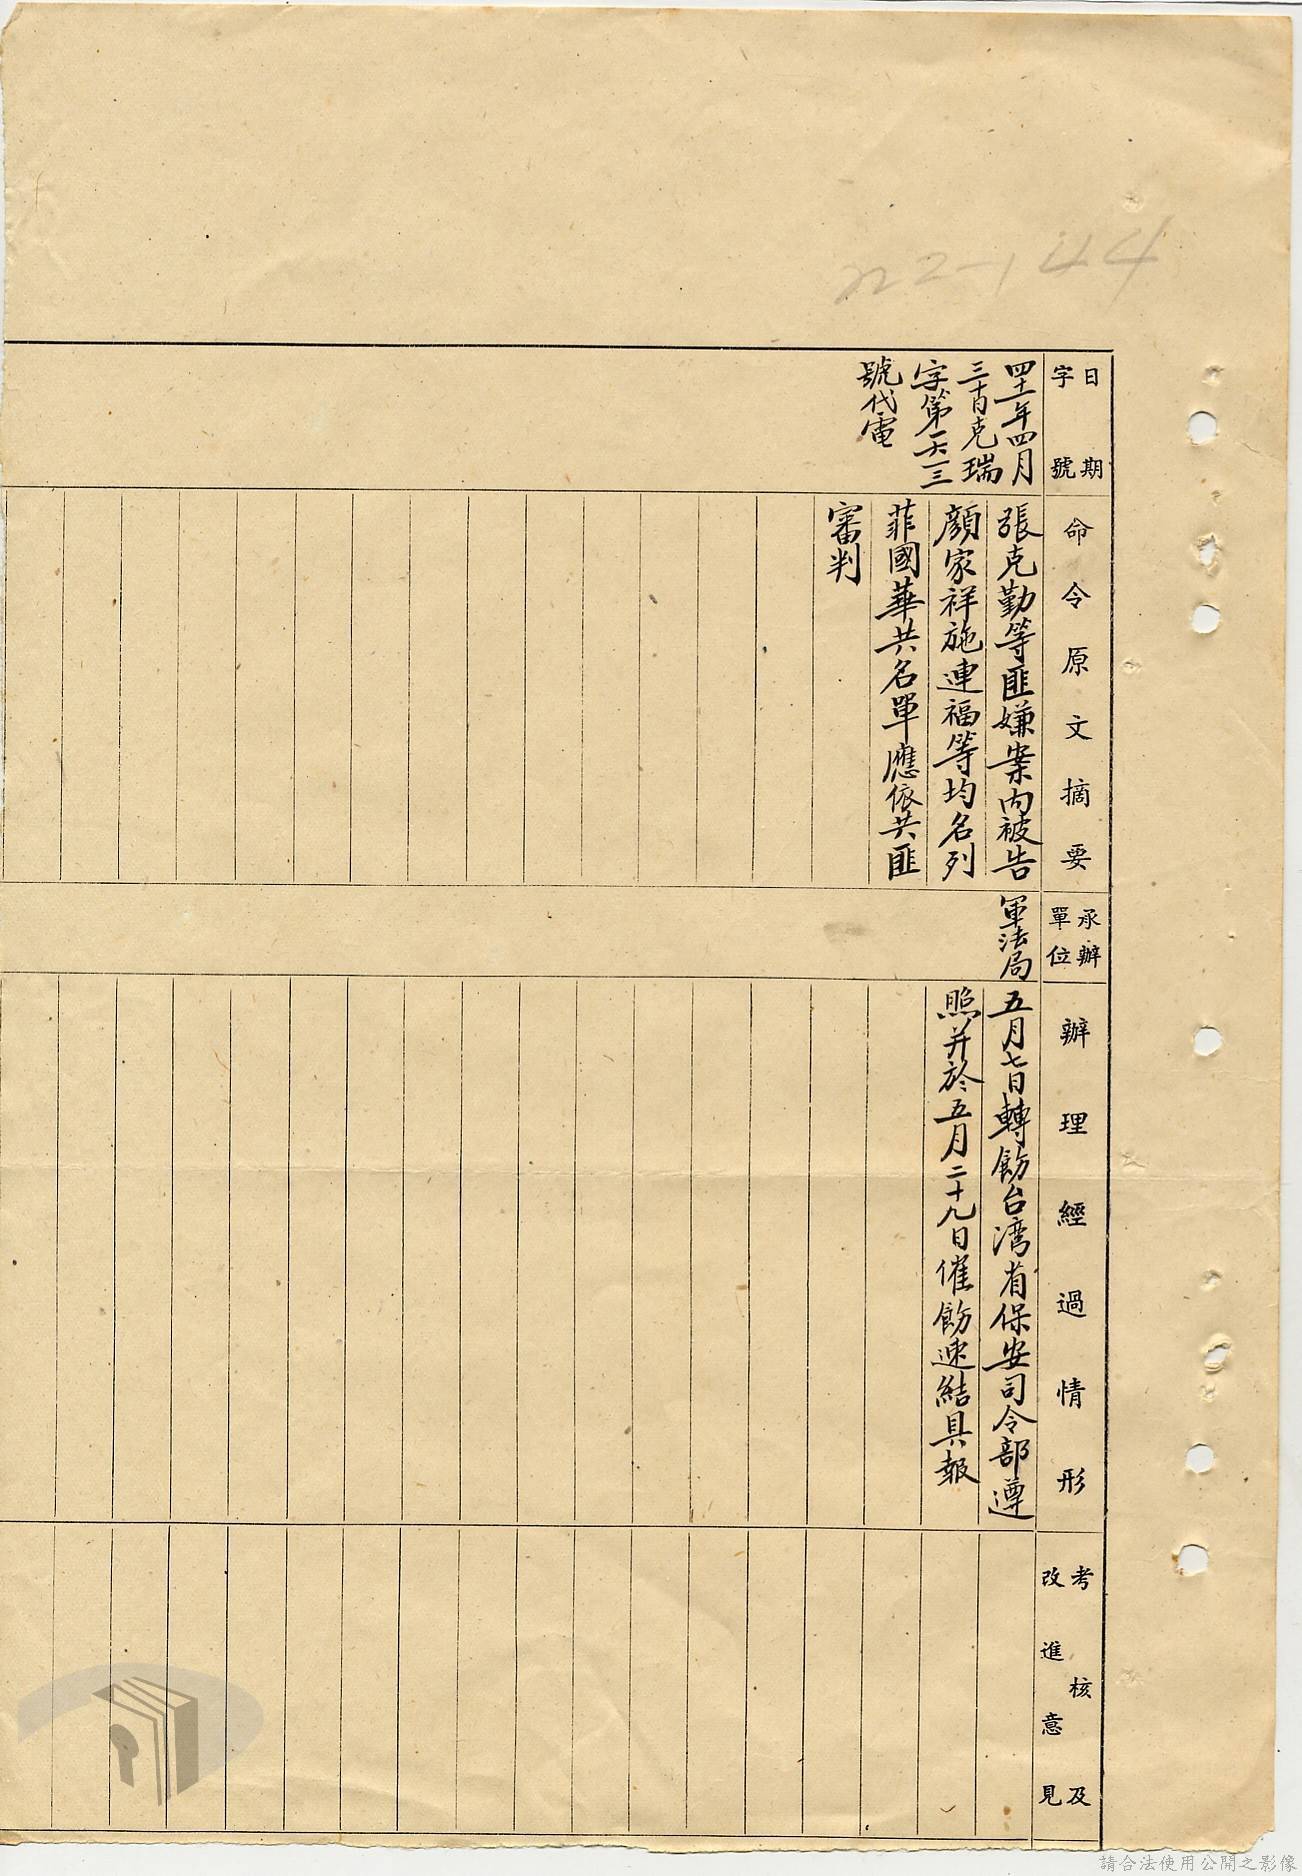 日期
字號
命令原文摘要
承辦
單位
辦理經過情形
考核及
改進意見
四十一年四月
三十日克瑞
字第
號代電
張克勤等匪嫌案內被告
顏家祥施連福等均名列
菲國華共名單應依共匪
審判
軍法局
五月七日轉飭台湾省保安司令部遵
照并於五月二十九日催飭速結具報
請合法使用公開之影像